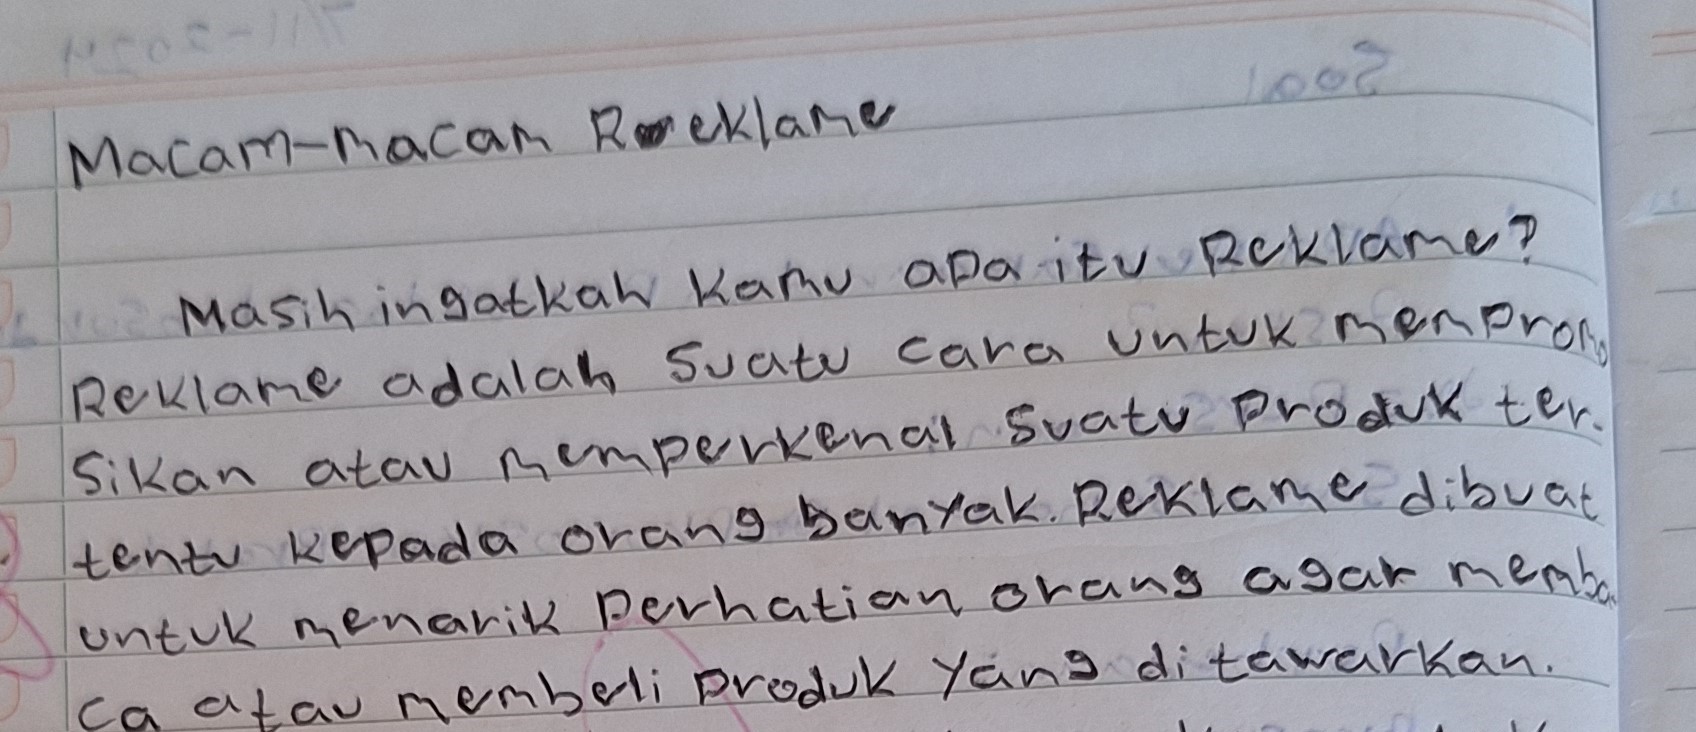 Macam-macam Reklame
Masih ingatkah kamu apa itu Reklame?
Reklame adalah Suatu cara untuk mempromo
Sikan atau memperkenal Suatu Produk ter-
tentu kepada orang banyak. Reklame dibuat
untuk menarik Perhatian orang agar memba
ca atau membeli Produk Yang ditawarkan.